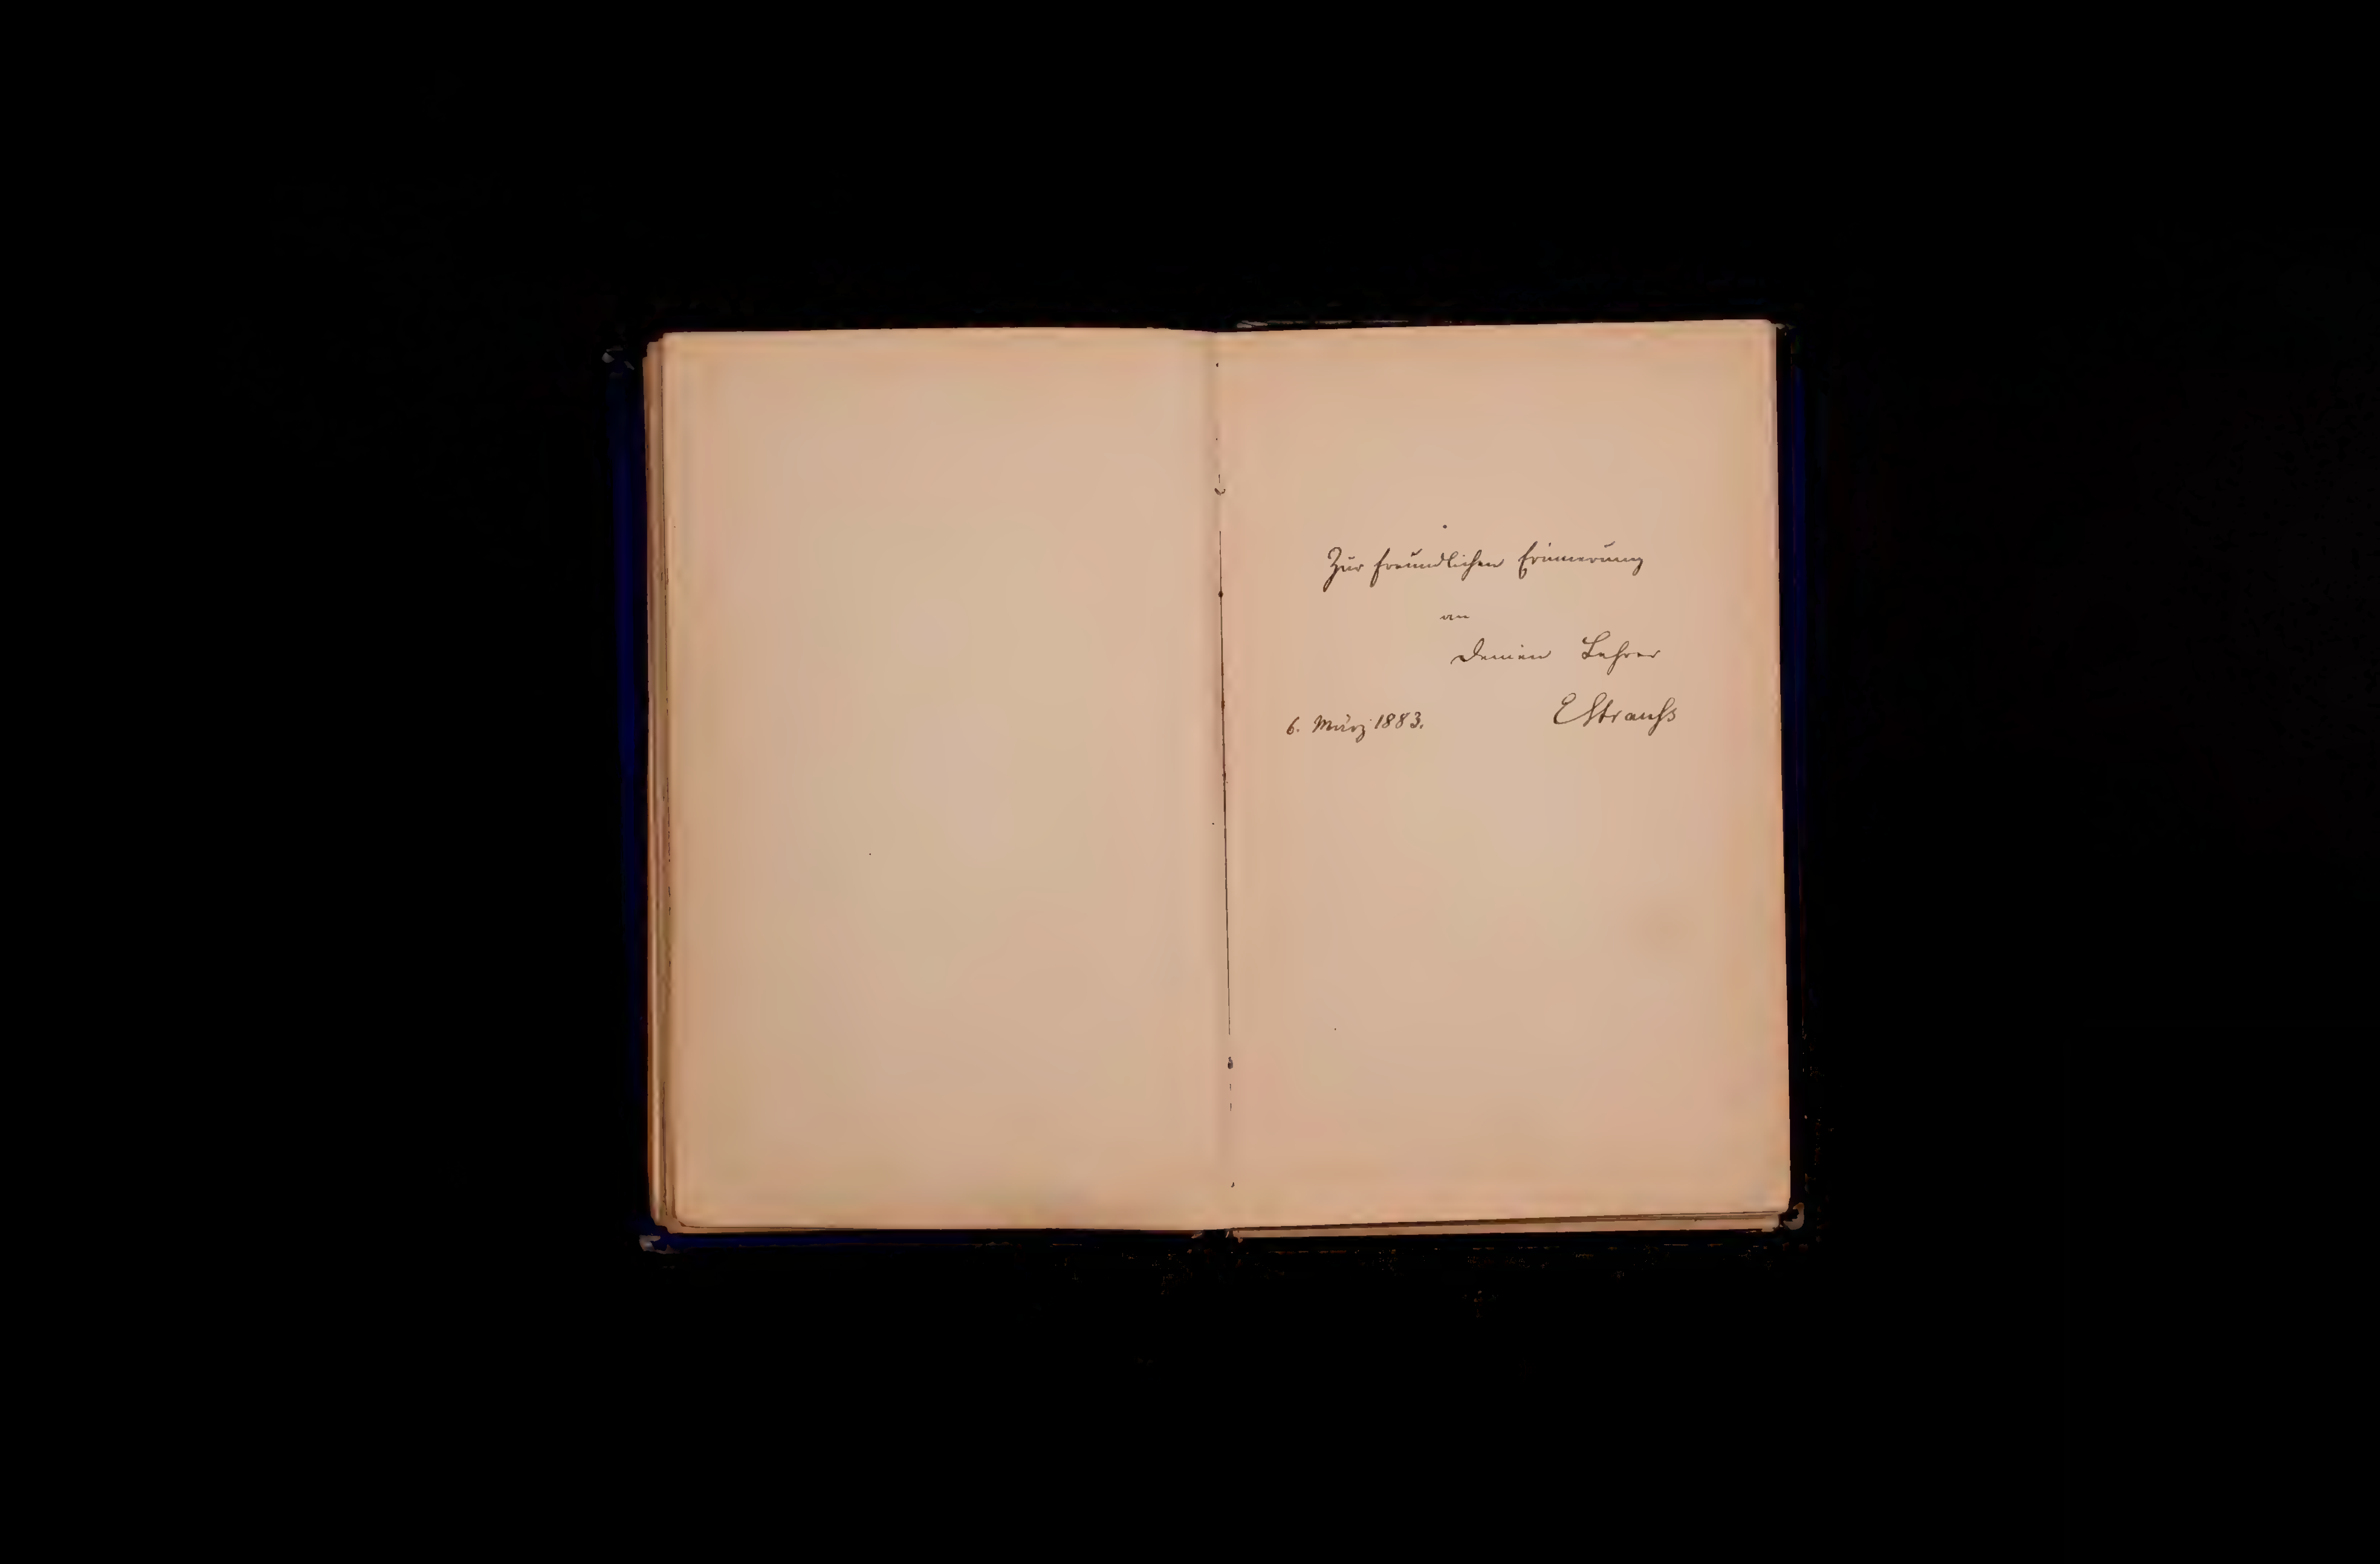 Zur freundlichen Erinnerung
an
Deinen Lehrer
6. März 1883. EStrauß